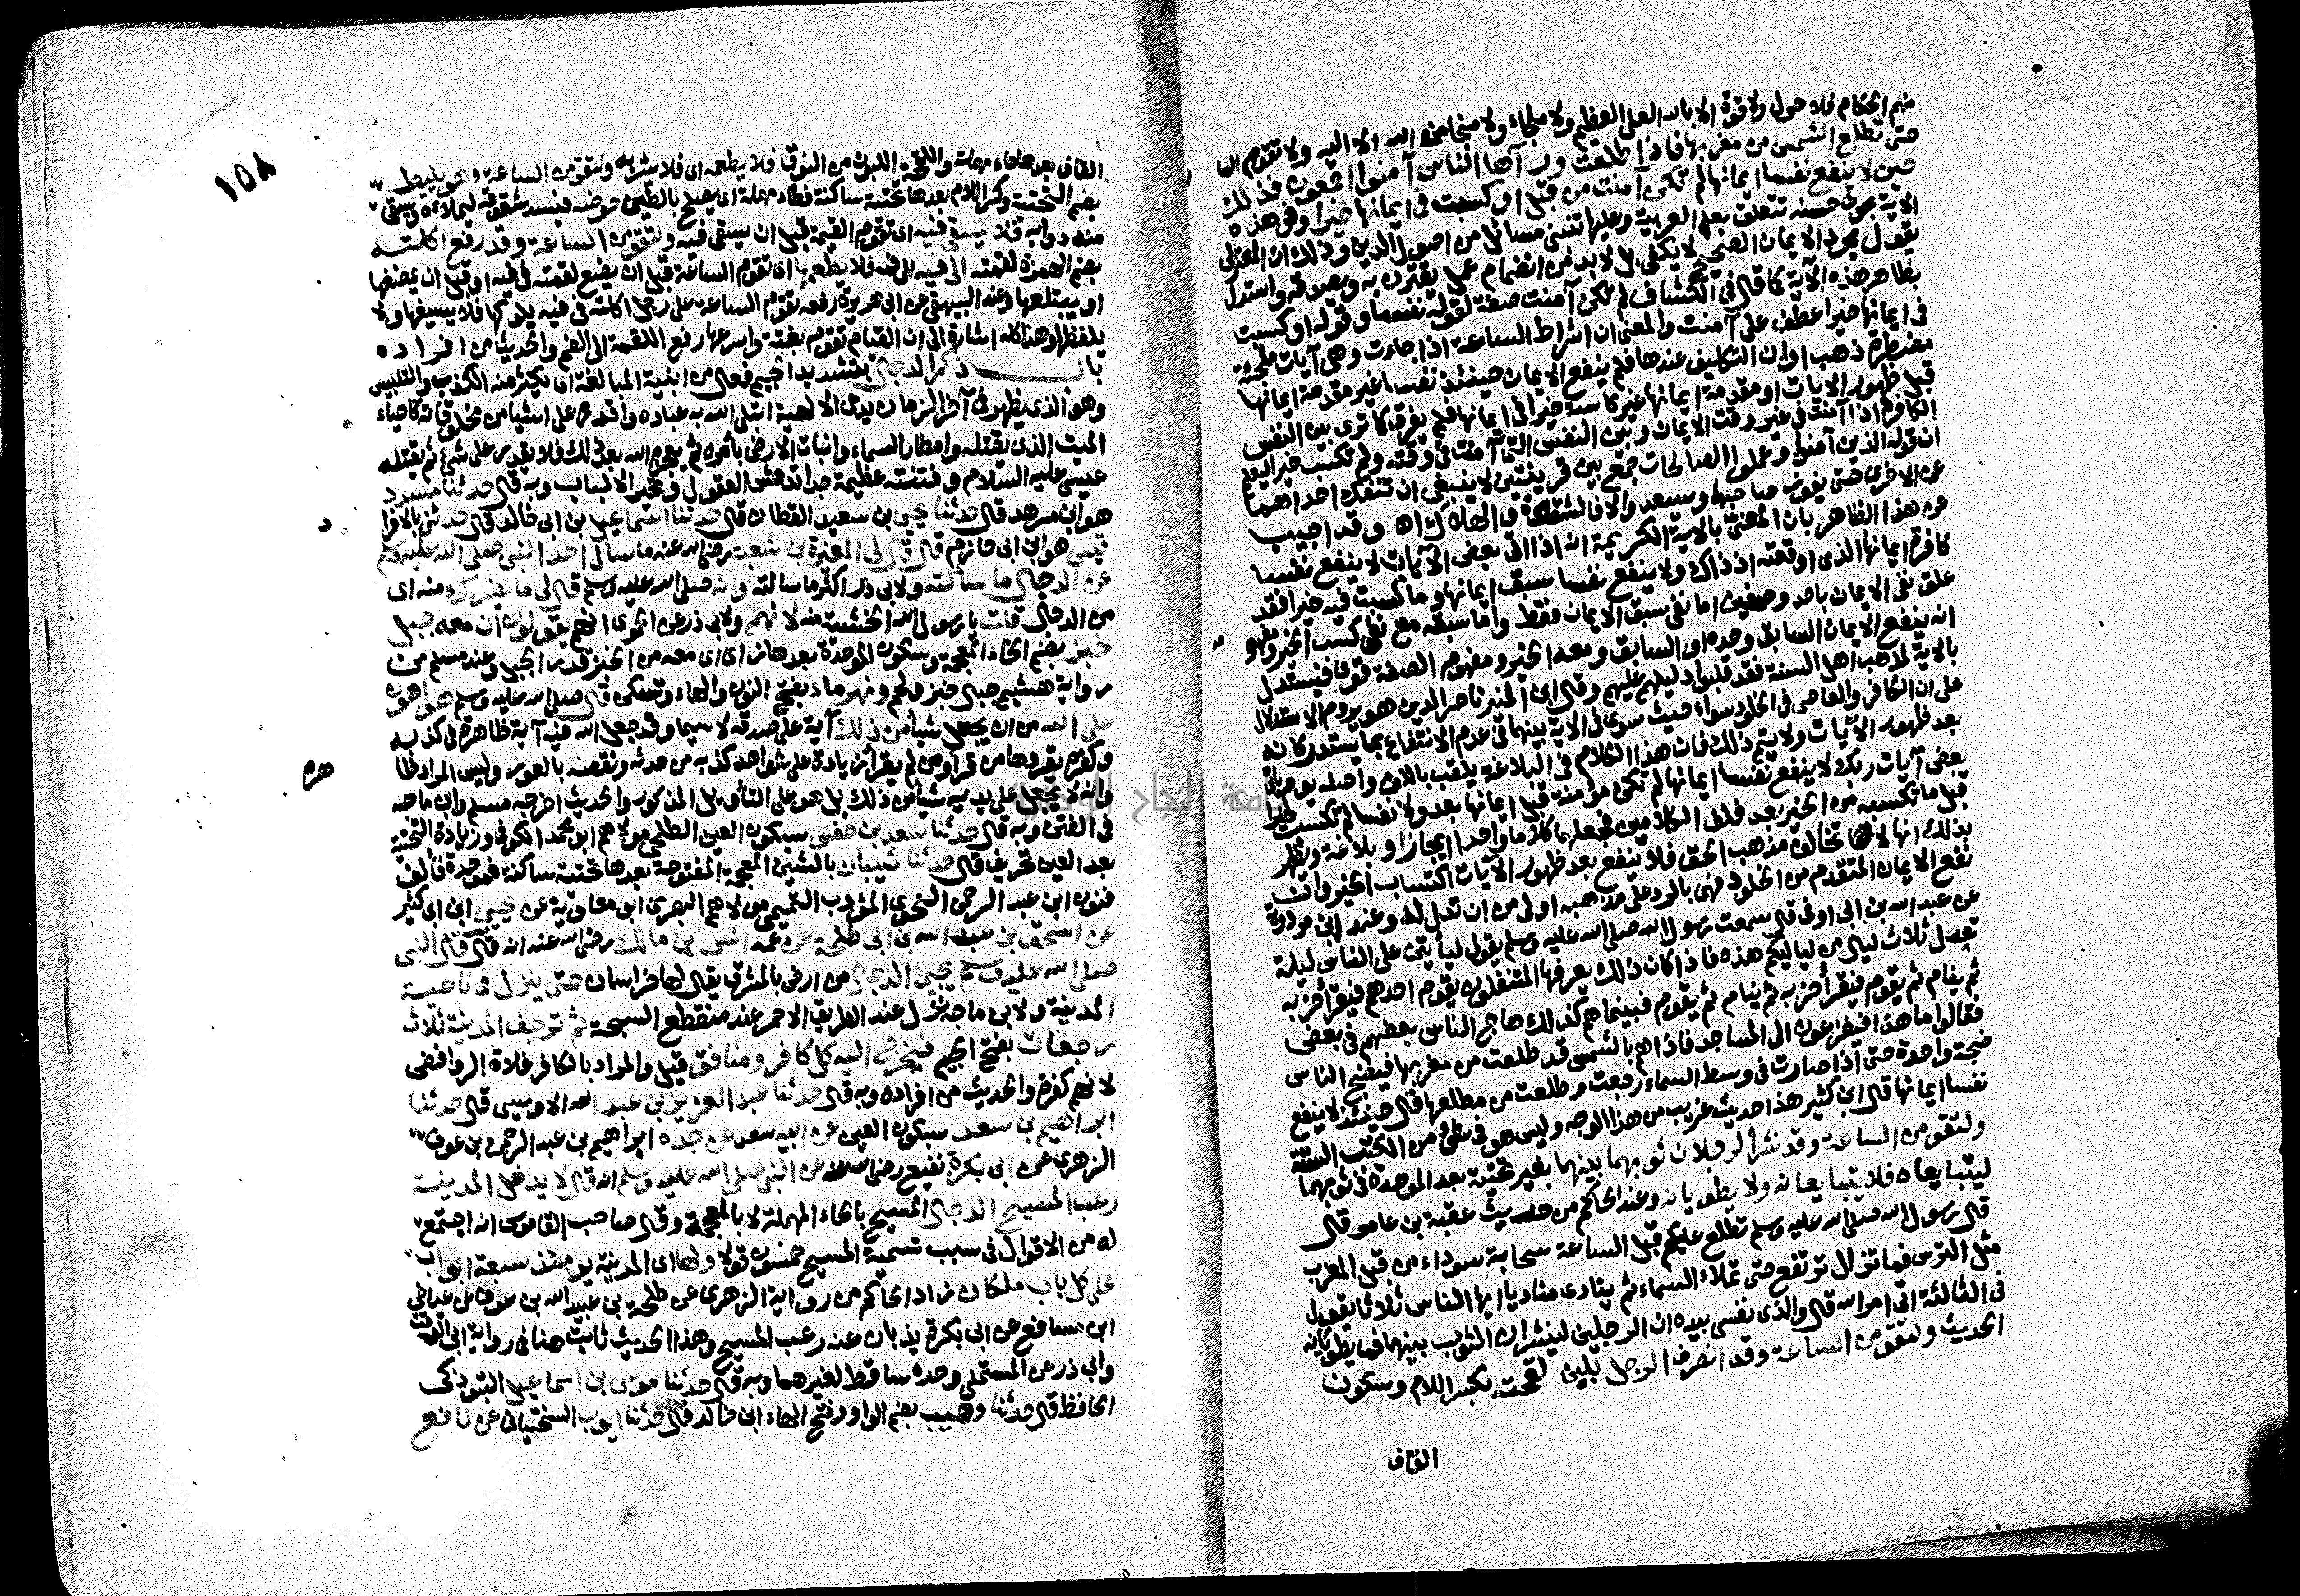 منهم الحكام فلا حول ولا قوة الا بالله العلي العظيم ولا ملجاء ولا منجا منه الا اليه ولا تقوم السا
حتى تطلع الشمس من مغربها فاذا طلعت ورآها الناس آمنوا اجمعون فذلك
حين لا ينفع نفسا ايمانها لم تكن آمنت من قبل او كسبت في ايمانها خيرا وفي هذه
الاية بحوث حسنة تتعلق بعلم العربية وعليها تنبني مسائل من اصول الدين وذلك ان المعتزلي
يقول مجرد الايمان الصحيح لا يكفي بل لا بد من انضمام عمل يقترن به ويصدقه واستدل
بظاهر هذه الآية كما قال في الكشاف لم تكن آمنت صفة لقوله نفسا وقوله او كسبت
في ايمانها خيرا عطف على آمنت والمعنى ان اشراط الساعة اذا جاءت وهي آيات ملجئة
مضطرة ذهب اوان التكليف عندها فلم ينفع الايمان حينئذ نفسا غير مقدمة ايمانها
قبل ظهور الايات او مقدمة ايمانها غير كاسبة خيرا في ايمانها فلم يفرق كما ترى بين النفس
الكافرة اذا آمنت في غير وقت الايمان وبين النفس التي آمنت في وقته ولم تكسب خيرا ليعلم
ان قوله الذين آمنوا وعملوا الصالحات جمع بين قرينتين لا ينبغي ان تنفك احداهما
عن الاخرى حتى يفوز صاحبها ويسعد والا فالشقوة والهلاك اه وقد اجيب
عن هذا الظاهر بان المعنى بالاية الكريمة انه اذا اتى بعض الآيات لا ينفع نفسا
كافرة ايمانها الذي اوقعته اذ ذاك ولا ينفع نفسا سبق ايمانها وما كسبت فيه خيرا فقد
علق نفي الايمان باحد وصفين اما نفي سبق الايمان فقط واما سبقه مع نفي كسب الخير ومفهو
انه ينفع الايمان السابق وحده او السابق ومعه الخير ومفهوم الصفة قوي فيستدل
بالاية لمذهب اهل السنة فقد قلبوا دليلهم عليهم وقال ابن المنير ناصر الدين هو يروم الاستدلال
على ان الكافر والعاصي في الخلود سواء حيث سوى في الاية بينهما في عدم الانتفاع بما يستدركانه
بعد ظهور الآيات ولا يتم ذلك فان هذا الكلام في البلاغة يلقب باللف واصله يوم ياتي
بعض آيات ربك لا ينفع نفسا ايمانها لم تكن مؤمنة قبل ايمانها بعد ولا نفسا لم تكسب خيرا
قبل ما تكسبه من الخير بعد فلف الكلامين فجعلهما كلاما واحدا ايجازا وبلاغة ويظهر
بذلك انها لا تخالف مذهب الحق فلا ينفع بعد ظهور الآيات اكتساب الخير وان
نفع الايمان المتقدم من الخلود فهي بالرد على مذهبه اولى من ان تدل له وعند ابن مردوية
عن عبد الله بن ابي اوفى قال سمعت رسول الله صلى الله عليه وسلم يقول ليأتين على الناس ليلة
تعدل ثلاث ليال من لياليكم هذه فاذا كان ذلك يعرفها المتنفلون يقوم احدهم فيقرأ حزبه
ثم ينام ثم يقوم فيقرأ حزبه ثم ينام ثم يقوم فبينما هم كذلك هاج الناس بعضهم في بعض
فقالوا ما هذا فيفزعون الى المساجد فاذا هم بالشمس قد طلعت من مغربها فيضج الناس
ضجة واحدة حتى اذا صارت في وسط السماء رجعت وطلعت من مطلعها قال حينئذ لا ينفع
نفسا ايمانها قال ابن كثير هذا حديث غريب من هذا الوجه وليس هو في شئ من الكتب الستة
ولتقومن الساعة وقد نشر الرجلان ثوبهما بينهما بغير تحتية بعد الموحدة في ثوبهما
ليتبايعاه فلا يتبايعانه ولا يطويانه وعند الحاكم من حديث عقبة بن عامر قال
قال رسول الله صلى الله عليه وسلم تطلع عليكم قبل الساعة سحابة سوداء من قبل المغرب
مثل الترس فما تزال ترتفع حتى تملاء السماء ثم ينادي مناد يا ايها الناس ثلاثا يقول
في الثالثة اتى امر الله قال والذي نفسي بيده ان الرجلين لينشران الثوب بينهما فما يطويانه
الحديث ولتقومن الساعة وقد انصرف الرجل بلبن لقحته بكسر اللام وسكون
القاف
١٥٨
القاف بعدها حاء مهملة واللقحة اللبون من النوق فلا يطعمه اي فلا يشربه ولتقومن الساعة وهو يليط
بضم التحتية وكسر اللام بعدها تحتية ساكنة فطاء مهملة اي يصلح بالطين حوضه فيسد شقوقه ليملأه ويسقي
منه دوابه فلا يسقي فيه اي تقوم القيمة قبل ان يسقي فيه ولتقومن الساعة وقد رفع اكلته
بضم الهمزة لقمته الى فيه الى فمه فلا يطعمها اي تقوم الساعة قبل ان يضع لقمته في فيه او قبل ان يمضغها
او يبتلعها وعند البيهقي عن ابي هريرة رفعه تقوم الساعة على رجل اكلته في فيه يلوكها فلا يسيغها ولا
يلفظها وهذا كله اشارة الى ان القيام تقوم بغتة واسرعها رفع اللقمة الى الفم والحديث من افراده
باب ذكر الدجال بتشديد الجيم فعال من ابنية المبالغة اي يكثر منه الكذب والتلبيس
وهو الذي يظهر في آخر الزمان يدعي الالهية ابتلى الله به عباده واقدره على اشيا من مخلوقاته كاحياء
الميت الذي يقتله وامطار السماء وانبات الارض بأمره ثم يعجزه الله بعد ذلك فلا يقدر على شئ ثم يقتله
عيسى عليه السلام وفتنته عظيمة جدا تدهش العقول وتحير الالباب وبه قال حدثنا مسدد
هو ابن مسرهد قال حدثنا يحيى بن سعيد القطان قال حدثنا اسماعيل بن ابي خالد قال حدثني بالافرا
د
قيس هو ابن ابي حازم قال قال لي المغيرة بن شعبة رضي الله عنه ما سأل احد النبي صلى الله عليه وسلم
عن الدجال ما سألته ولابي ذر اكثر ما سالته وانه صلى الله عليه وسلم قال لي ما يضرك منه اي
من الدجال قلت يا رسول الله الخشية منه لانهم ولابي ذر عن الحموي انهم يقولون ان معه جبل
خبز بضم الخاء المعجمة وسكون الموحدة بعدها زاي اي معه من الخبز قدر الجبل وعند مسلم من
رواية هشيم جبال خبز ولحم ونهر ماء بفتح النون والهاء وتسكن قال صلى الله عليه وسلم هو اهون
على الله من ان يجعل شيأ من ذلك آية على صدقه لا سيما وقد جعل الله فيه آية ظاهرة في كذبه
وكفره يقرؤها من قرأ ومن لم يقرأ زيادة على شواهد كذبه من حدثه ونقصه بالعور وليس المراد ظا
هره
وانه لا يجعل على يديه شيأ من ذلك بل هو على التأويل المذكور والحديث اخرجه مسلم وابن ماجه
في الفتن وبه قال حدثنا سعد بن حفص بسكون العين الطلحي مولاهم ابو محمد الكوفي وزيادة التحتية
بعد العين تحريف قال حدثنا شيبان بالشين المعجمة المفتوحة بعدها تحتية ساكنة فموحدة فألف
فنون ابن عبد الرحمن النحوي المؤدب التميمي مولاهم البصري ابو معاوية عن يحيى ابن ابي كثير
عن اسحق بن عبد الله بن ابي طلحة عن عمه انس بن مالك رضي الله عنه انه قال قال النبي
صلى الله عليه وسلم يجيئ الدجال من ارض بالمشرق يقال لها خراسان حتى ينزل في ناحية
المدينة ولابن ماجة ينزل عند الطريق الاحمر عند منقطع السبخة ثم ترجف المدينة ثلاث
رجفات بفتح الجيم فيخرج اليه كل كافر ومنافق قيل والمراد بالكافر غلاة الروافض
لانهم كفرة والحديث من افراده وبه قال حدثنا عبد العزيز بن عبد الله الاويسي قال حدثنا
ابراهيم بن سعد بسكون العين عن ابيه سعد عن جده ابراهيم بن عبد الرحمن بن عوف
الزهري عن ابي بكرة نفيع رضي الله عنه عن النبي صلى الله عليه وسلم انه قال لا يدخل المدينة
رعب المسيح الدجال المسيح بالحاء المهملة لا بالمعجمة وقال صاحب القاموس انه اجتمع
له من الاقوال في سبب تسمية المسيح خمسون قولا ولها اي المدينة يومئذ سبعة ابواب
على كل باب ملكان زاد الحاكم من رواية الزهري عن طلحة بن عبيد الله بن عوف عن عياض
ابن مسافع عن ابي بكرة يذبان عنه رعب المسيح وهذا الحديث ثابت هنا في رواية ابي الوقت
وابي ذر عن المستملي وحده ساقط لغيرهما وبه قال حدثنا موسى بن اسماعيل التبوذكي
الحافظ قال حدثنا وهيب بضم الواو وفتح الهاء ابن خالد قال حدثنا ايوب السختياني عن نافع
جامعة النجاح